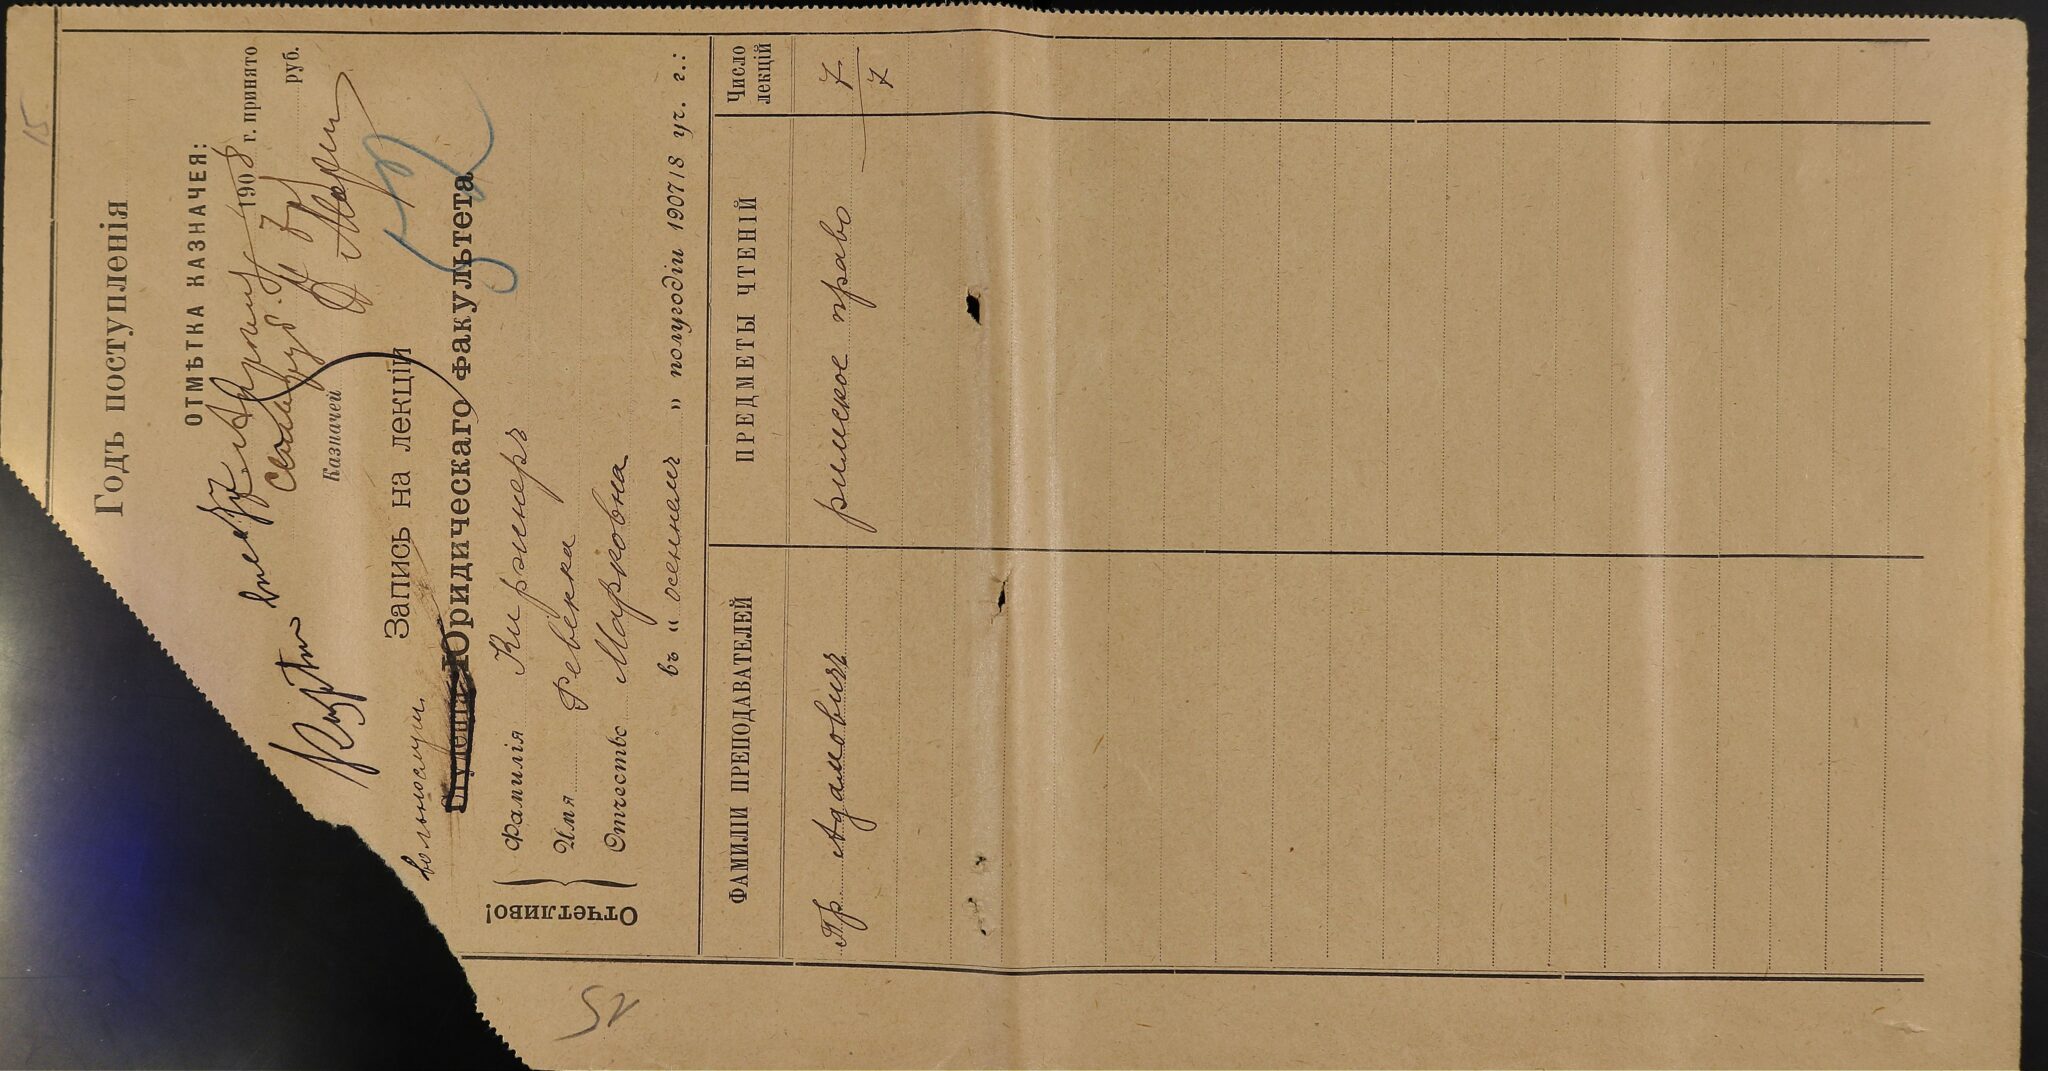 15
Годъ поступленія
ОТМѢТКА КАЗНАЧЕЯ:
1908 г. принято
руб.
Казначей
Запись на лекціи
вольнослуш.
Студента Юридическаго Факультета
52
Отчетливо!
Фамилія Киржнеръ
Имя Ревекка
Отчество Марковна
въ " осеннемъ " полугодіи 190718 уч. г.:
ФАМИЛІИ ПРЕПОДАВАТЕЛЕЙ ПРЕДМЕТЫ ЧТЕНІЙ Число лекцій
Пр. Адамовичъ римское право 7
7
52